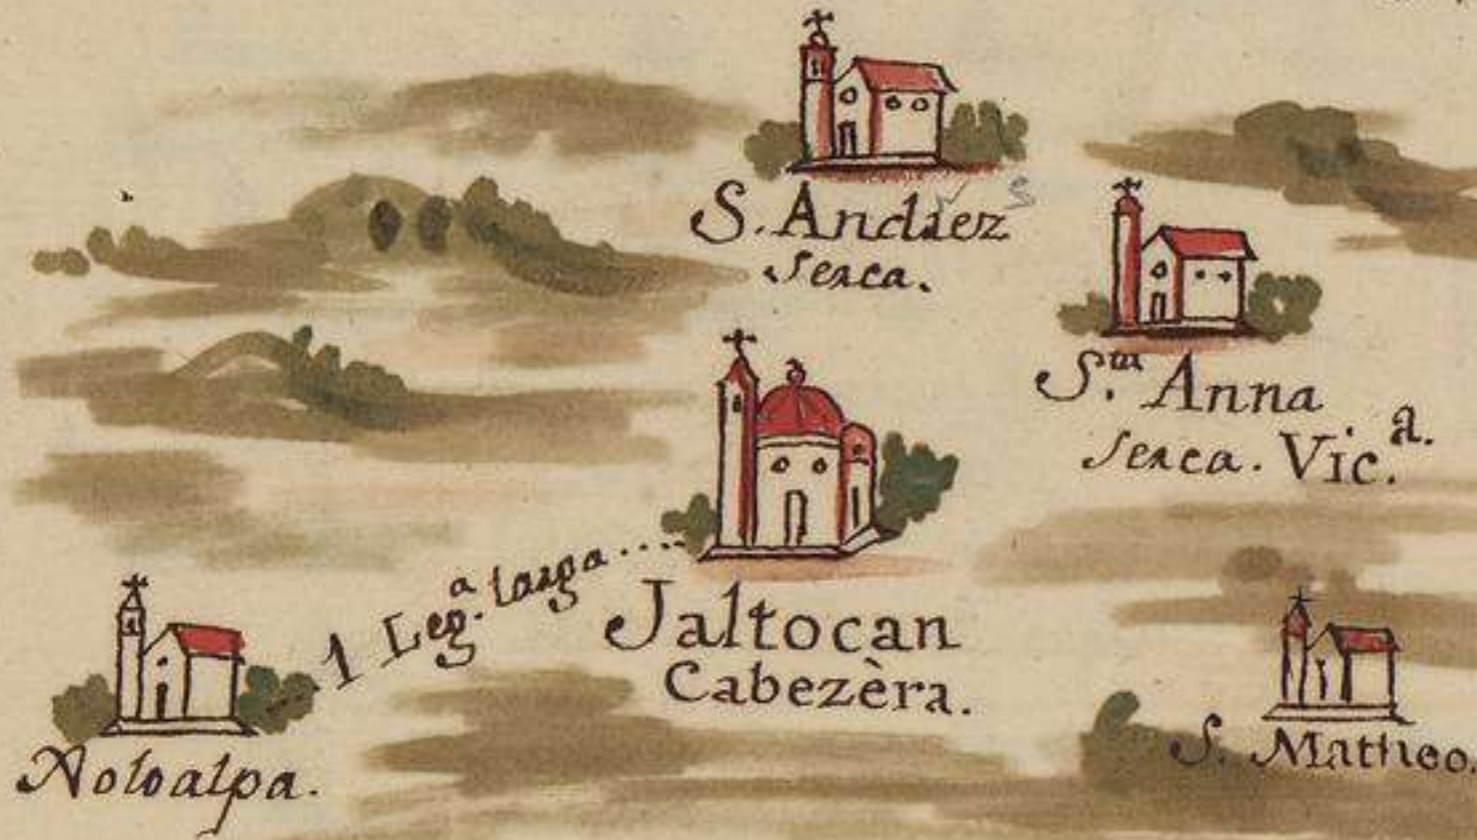 S. Andrez
serca.
S.ta Anna
serca. Vic.a
1 Leg.a larga....
Jaltocan
Cabezèra.
Noloalpa.
S. Mattheo.